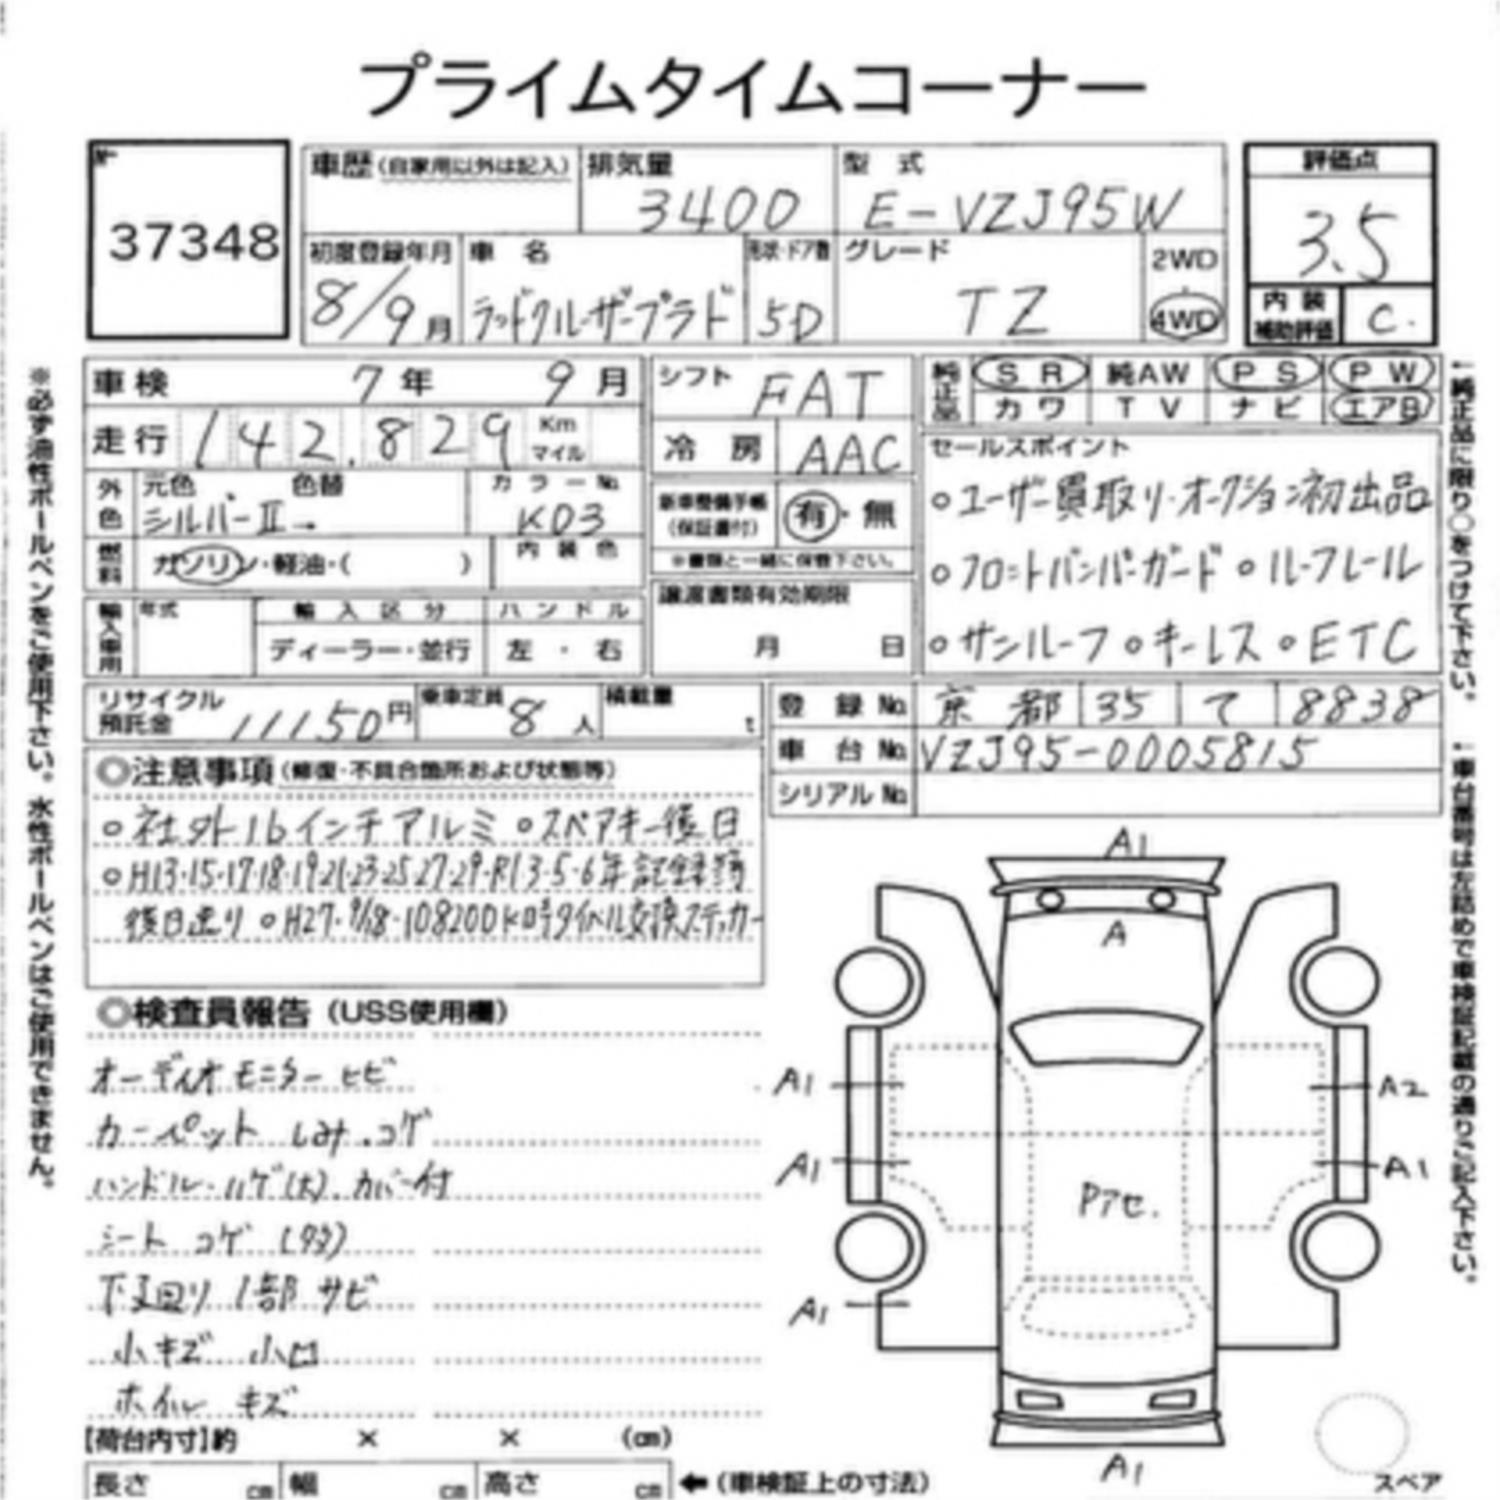 プライムタイムコーナー
37348
車歴(自家用以外は記入) 排気量 型式 評価点
3400 E-VZJ95W 3.5
初度登録年月 車名 形状・ドア数 グレード 2WD
8/9月 ランドクルーザープラド 5D TZ 4WD
内装補助評価 C.
車検 7年 9月 シフト FAT 純正品 SR 純AW PS PW
カワ TV ナビ エアB
走行 142.829 Km マイル 冷房 AAC セールスポイント
外色 元色 色替 カラーNo. 新車整備手帳(保証書付) 有・無
シルバーⅡ→ K03
○ユーザー買取り・オークション初出品
燃料 ガソリン・軽油・( ) 内装色 ※書類と一緒に保管下さい。
○フロントバンパーガード ○ルーフレール
輸入車用 年式 輸入区分 ハンドル 譲渡書類有効期限
ディーラー・並行 左・右 月 日
○サンルーフ ○キーレス ○ETC
リサイクル預託金 11150円 乗車定員 8人 積載量 t 登録No. 京都 35 て 8838
車台No. VZJ95-0005815
シリアルNo.
◎注意事項(修復・不具合箇所および状態等)
○社外16インチアルミ ○スペアキー後日
○H13・15・17・18・19・21・23・25・27・29・R1・3・5・6年記録簿
後日送り ○H27・9/18・108200K時タイベル交換ステッカー
◎検査員報告(USS使用欄)
オーディオモニターヒビ
カーペット しみ.コゲ
ハンドル・ハゲ(大).カバー付
シート コゲ(多)
下廻り 1部 サビ
小キズ 小凹
ホイル キズ
【荷台内寸】約 × × (cm)
長さ cm 幅 cm 高さ cm ←(車検証上の寸法)
A1
A
A1 A2
A1 A1
Pアセ.
A1
A1
スペア
※必ず油性ボールペンをご使用下さい。水性ボールペンはご使用できません。
↑純正品に限り○をつけて下さい。
↑車台番号は左詰めで車検証記載の通りご記入下さい。